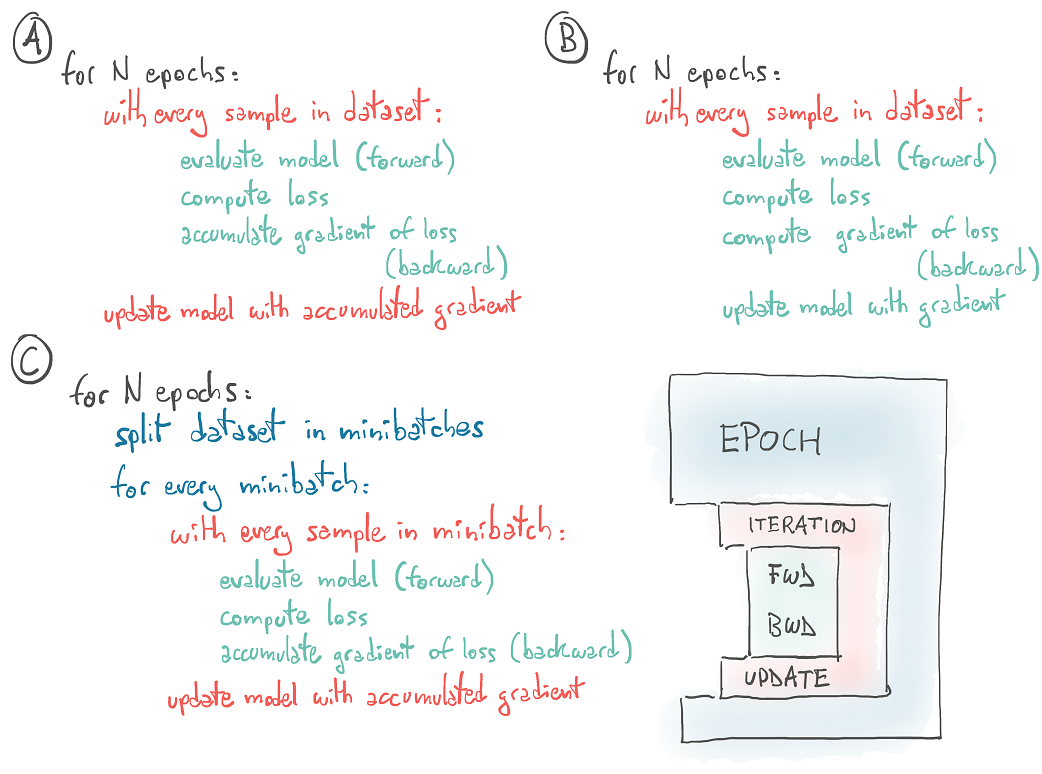 A
for N epochs:
with every sample in dataset:
evaluate model (forward)
compute loss
accumulate gradient of loss
(backward)
update model with accumulated gradient
B
for N epochs:
with every sample in dataset:
evaluate model (forward)
compute loss
compute gradient of loss
(backward)
update model with gradient
C
for N epochs:
split dataset in minibatches
for every minibatch:
with every sample in minibatch:
evaluate model (forward)
compute loss
accumulate gradient of loss (backward)
update model with accumulated gradient
EPOCH
ITERATION
FWD
BWD
UPDATE